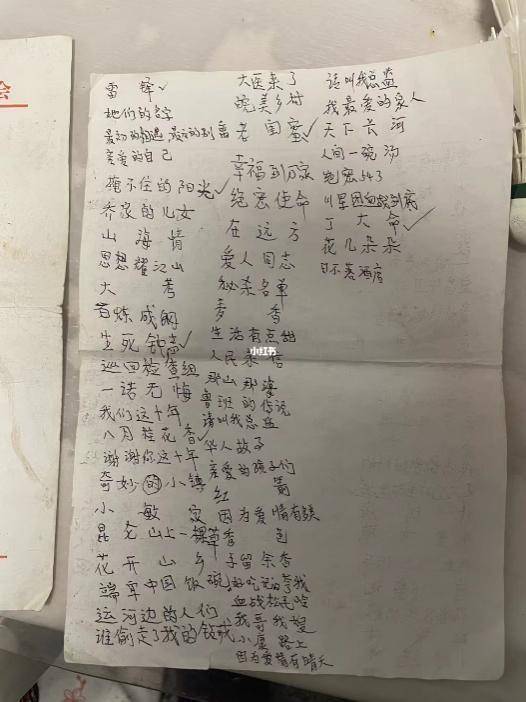 雷锋✓
她们的名字
最初的相遇 最后的别离
亲爱的自己
掩不住的阳光✓
乔家的儿女
山海情
思想耀江山
大考
百炼成钢
生死钟声✓
巡回检查组
一诺无悔
我们这十年
八月桂花香✓
谢谢你这十年
奇妙的小镇
小敏家
昆仑山上一棵草
花开山乡
端牢中国饭碗
运河边的人们
谁偷走了我的
大医来了
美乡村
老闺蜜✓
幸福到万家
绝密使命
在远方
爱人同志
秘杀名单
麦香
生活有点甜
人民来信
那山那
鲁班的传说
请叫我总监
华人故子
亲爱的孩子们
红
因为爱情有
香包
子留余香
好吃
血战松毛岭
我哥我嫂
小康路上
因为爱情有晴天
请叫我总监
我最爱的家人
天下长河
人间一碗汤
绝密543
川星因
丁大命✓
花儿朵朵
日不落酒店
小红书
会